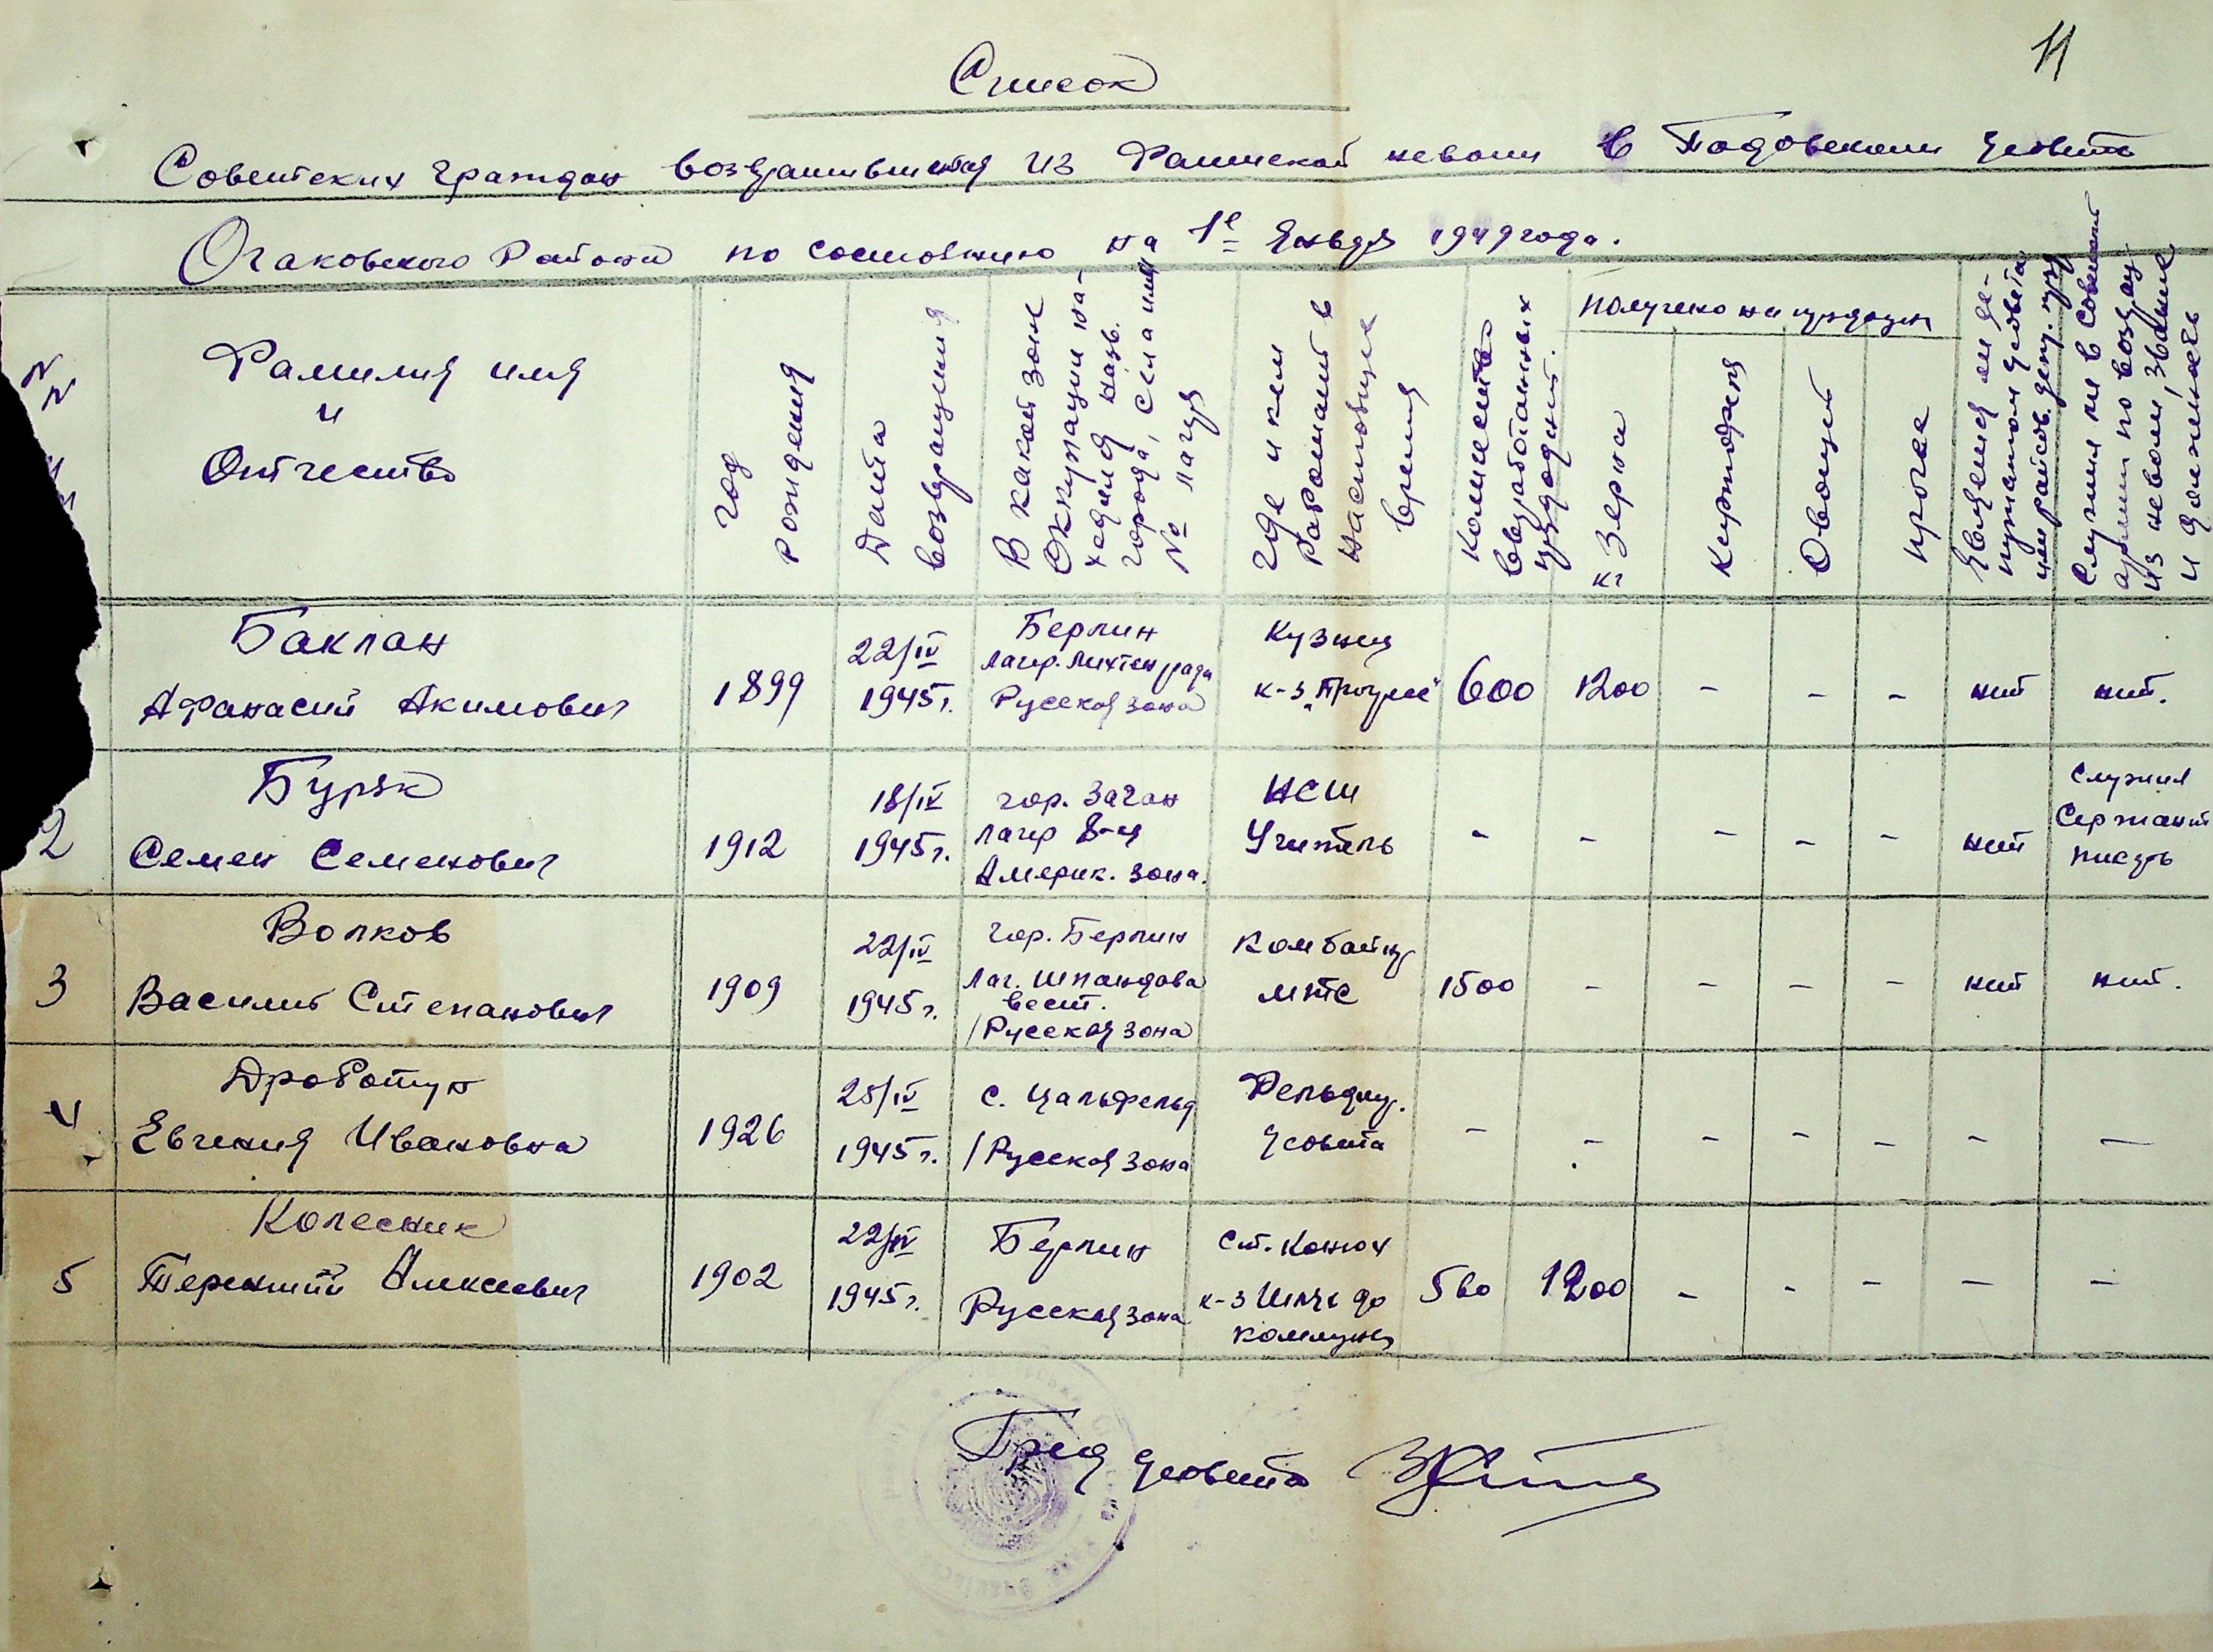 11
Список
Советских граждан возвратившихся из Фашиской неволи в Подовском с/совете
Очаковского Района по состоянию на 1е Января 1949 года.
№
Фамилия имя
и
Отчество
Год
рождения
Дата
возвращения
В какой зоне
Оккупации на-
ходился назв.
города, села или
№ лагеря
Где и кем
работает в
настоящее
время
Количество
выработанных
трудодней.
получено на трудодни
кг Зерна
Картофеля
Овощей
прочее
Является ли де-
путатом с/совета
или райсов. депут. труд
Служил ли в Советской
армии по возвращ
из неволи, звание
и должность
Баклан
Афанасий Акимович
1899
22/IV
1945 г.
Берлин
лагер. Лихтенрада
Русская зона
Кузнец
к-з „Прогрес"
600
1200
–
–
–
нет
нет.
2
Буряк
Семен Семенович
1912
18/IV
1945 г.
гор. Заган
лагер 8-ц
Америк. зона.
НСШ
Учитель
–
–
–
–
–
нет
Служил
Сержант
писарь
3
Волков
Василий Степанович
1909
22/IV
1945 г.
гор. Берлин
Лаг. Шпандава
вест.
/Русская зона
Комбайнер
МТС
1500
–
–
–
–
нет
нет.
4
Дроботун
Евгения Ивановна
1926
25/IV
1945 г.
с. Цальфельд
/Русская зона
Фельдшер.
с/совета
–
–
–
–
–
–
–
5
Колесник
Терентий Алексеевич
1902
22/IV
1945 г.
Берлин
Русская зона
Ст. Конюх
к-з Шлях до
коммуны
560
1200
–
–
–
–
–
Пред с/совета